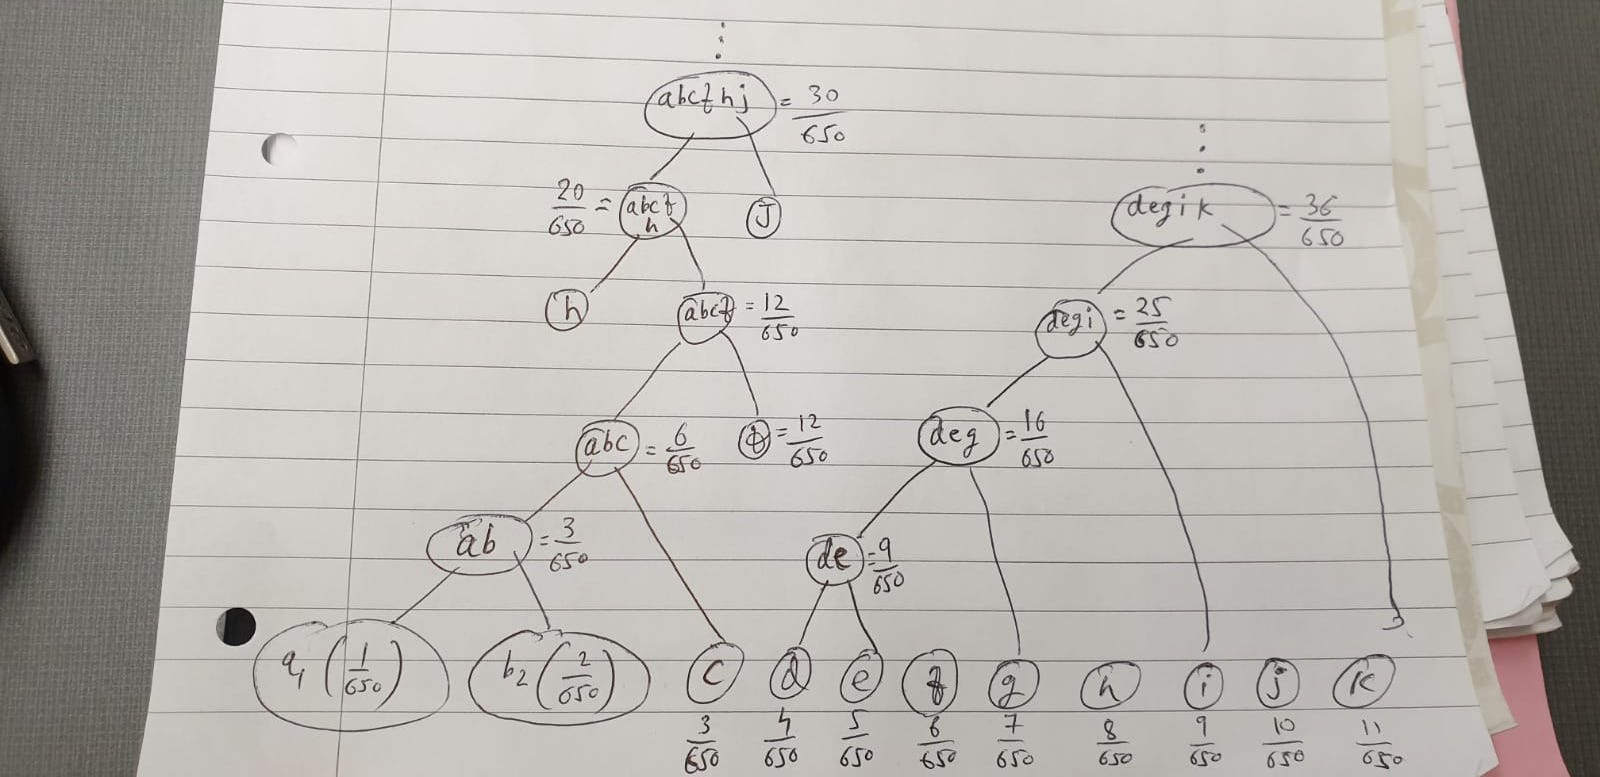 abcfhj = 30/650
20/650 = abcf h
J
degik = 36/650
h
abcf = 12/650
degi = 25/650
abc = 6/650
f = 12/650
deg = 16/650
ab = 3/650
de = 9/650
a1 (1/650)
b2 (2/650)
c d e f g h i j k
3/650 4/650 5/650 6/650 7/650 8/650 9/650 10/650 11/650